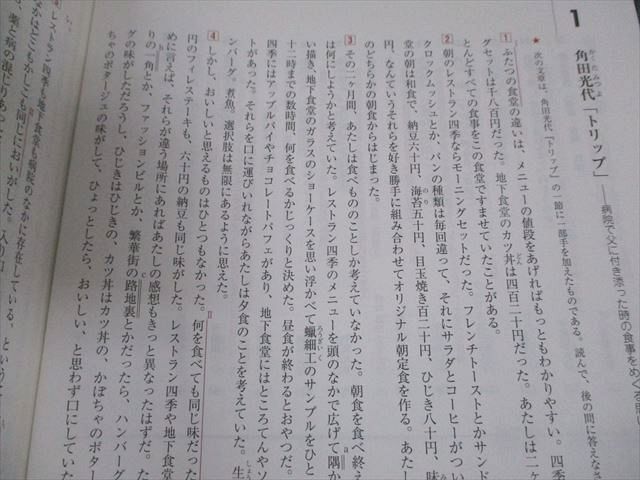 1
角田光代「トリップ」――病院で父に付き添った時の食事をめぐる
かくたみつよ
★ 次の文章は、角田光代「トリップ」の一節に一部手を加えたものである。読んで、後の問に答えなさ
1 ふたつの食堂の違いは、メニューの値段をあげればもっともわかりやすい。四
グセットは千八百円だった。地下食堂のカツ丼は四百二十円だった。あたしは二ヶ
とんどすべての食事をこの食堂ですませていたことがある。
2 朝のレストラン四季ならモーニングセットだった。フレンチトーストとかサンド
クロックムッシュとか、パンの種類は毎回違って、それにサラダとコーヒーがつい
堂の朝は和食で、納豆六十円、海苔五十円、目玉焼き百二十円、ひじき八十円、味
円、なんていうそれらを好き勝手に組み合わせてオリジナル朝定食を作る。あたし
のどちらかの朝食からはじまった。
3 その二ヶ月間、あたしは食べもののことしか考えていなかった。朝食を食べ終え
は何にしようかと考えていた。レストラン四季のメニューを頭のなかで広げて隅か
い描き、地下食堂のガラスのショーケースを思い浮かべて蠟細工のサンプルをひと
十二時までの数時間、何を食べるかじっくりと決めた。昼食が終わるとおやつだ。
四季にはアップルパイやチョコレートパフェがあり、地下食堂にはところてんやソ
トがあった。それらを口に運びいれながらあたしは夕食のことを考えていた。生
ンバーグ。煮魚。選択肢は無限にあるように思えた。
4 しかし、おいしいと思えるものはひとつもなかった。何を食べても同じ味だった
円のフィレステーキも、六十円の納豆も同じ味がした。レストラン四季や地下食堂
めに言えば、それらが違う場所にあればあたしの感想もきっと異なったはずだ。た
りの一角とか、ファッションビルとか、繁華街の路地裏とかだったら、ハンバーグ
グの味がしただろうし、ひじきはひじきの、カツ丼はカツ丼の、かぼちゃのポター
ちゃのポタージュの味がして、ひょっとしたら、おいしい、と思わず口にしていた
レストラン四季も地下食堂も病院のなかに存在している、という